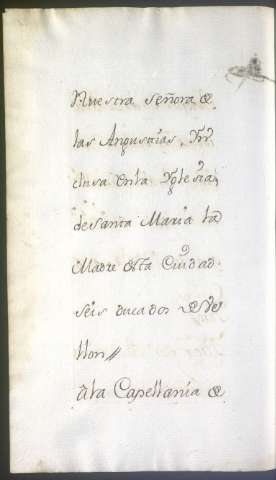 Nuestra Señora de
las Angustias, Yn
clusa en la Yglesia
de Santa Maria la
Madre desta Ciudad
seis ducados de ve
llon//
A la Capellania de